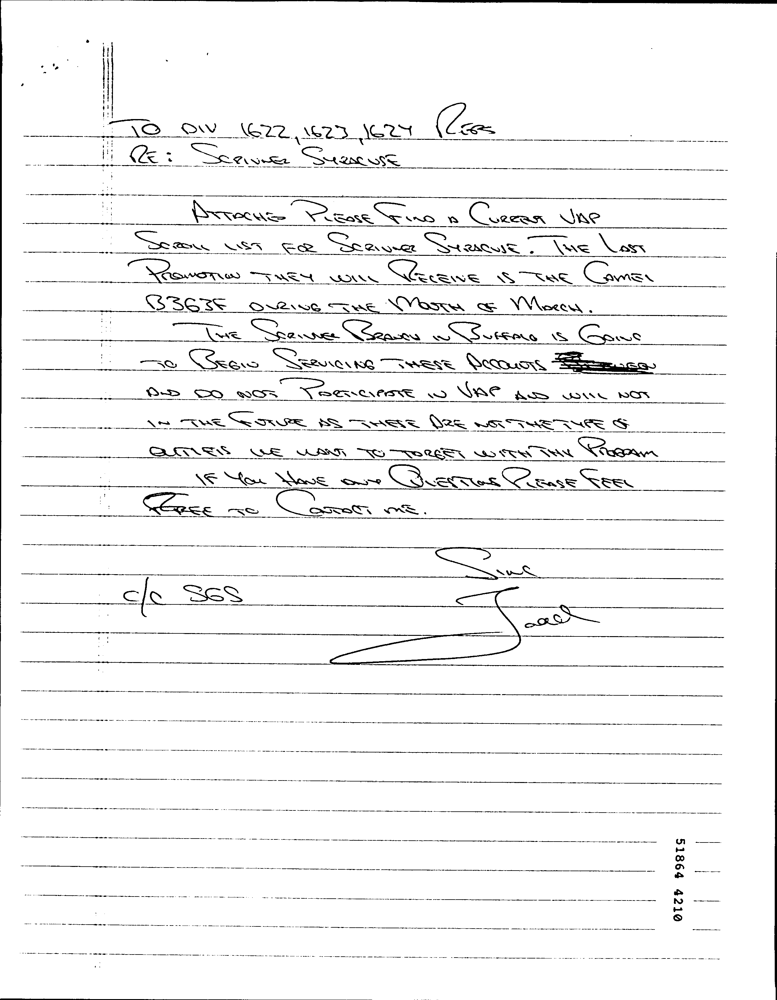 TO DIV 1622, 1623, 1624 REPS
RE: SCRIVNER SYRACUSE
ATTACHED PLEASE FIND A CURRENT VAP
SCROLL LIST FOR SCRIVNER SYRACUSE. THE LAST
PROMOTION THEY WILL RECEIVE IS THE CAMEL
B363F DURING THE MONTH OF MARCH.
THE SCRIVNER BRANCH IN BUFFALO IS GOING
TO BEGIN SERVICING THESE ACCOUNTS
AND DO NOT PARTICIPATE IN VAP AND WILL NOT
IN THE FUTURE AS THESE ARE NOT THE TYPE OF
OUTLETS WE WANT TO TARGET WITH THIS PROGRAM
IF YOU HAVE ANY QUESTIONS PLEASE FEEL
FREE TO CONTACT ME.
SINC
C/C SGS
51864 4210